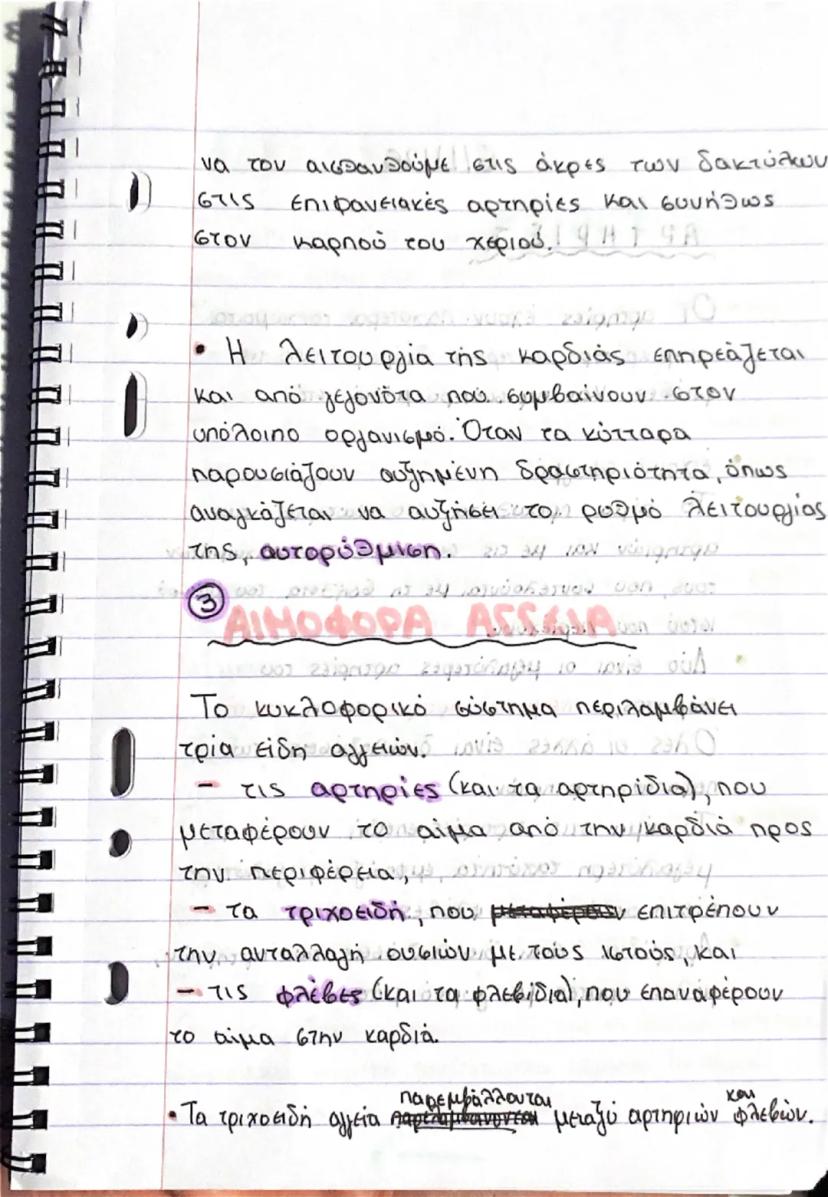 να τον αισθανθούμε στις άκρες των δακτύλων
στις επιφανειακές αρτηρίες και συνήθως
στον καρπού του χεριού.
• Η λειτουργία της καρδιάς επηρεάζεται
και από γεγονότα πού συμβαίνουν στον
υπόλοιπο οργανισμό. Όταν τα κύτταρα
παρουσιάζουν αυξημένη δραστηριότητα, όπως
αναγκάζεται να αυξήσει το ρυθμό λειτουργίας
της, αυτορύθμιση.
3 ΑΙΜΟΦΟΡΑ ΑΓΓΕΙΑ
Το κυκλοφορικό σύστημα περιλαμβάνει
τρία είδη αγγειών.
- τις αρτηρίες (και τα αρτηρίδια), που
μεταφέρουν το αίμα από την καρδιά προς
την περιφέρεια,
- τα τριχοειδή, που μεταφέρουν επιτρέπουν
την ανταλλαγή ουσιών με τούς ιστούς, και
- τις φλέβες (και τα φλεβίδια), που επαναφέρουν
το αίμα στην καρδιά.
• Τα τριχοειδή αγγεία παρεμβάλλονται μεταξύ αρτηριών και φλεβών.